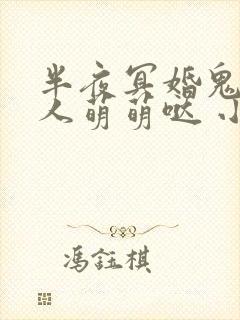 半夜冥婚鬼
人萌萌哒 小
冯钰棋